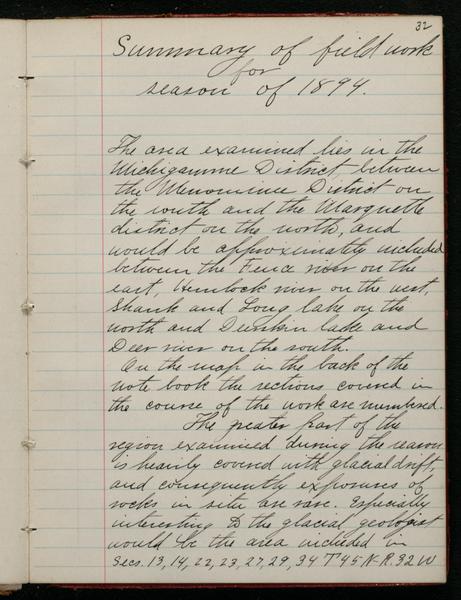 32
Summary of field work
for
season of 1894.
The area examined lies in the
Michigamme District, between
the Menominee District on
the south and the Marquette
district on the north, and
would be approximately included
between the Fence river on the
east, Hemlock river on the west,
Shank and Long lake on the
north and Deerskin lake and
Deer river on the south.
On the map in the back of the
note book the sections covered in
the course of the work are numbered.
The greater part of the
region examined during the season
is heavily covered with glacial drift,
and consequently exposures of
rocks in situ are rare. Especially
interesting to the glacial geologist
would be the area included in
Secs. 13, 14, 22, 23, 27, 29, 34 T45N-R.32W